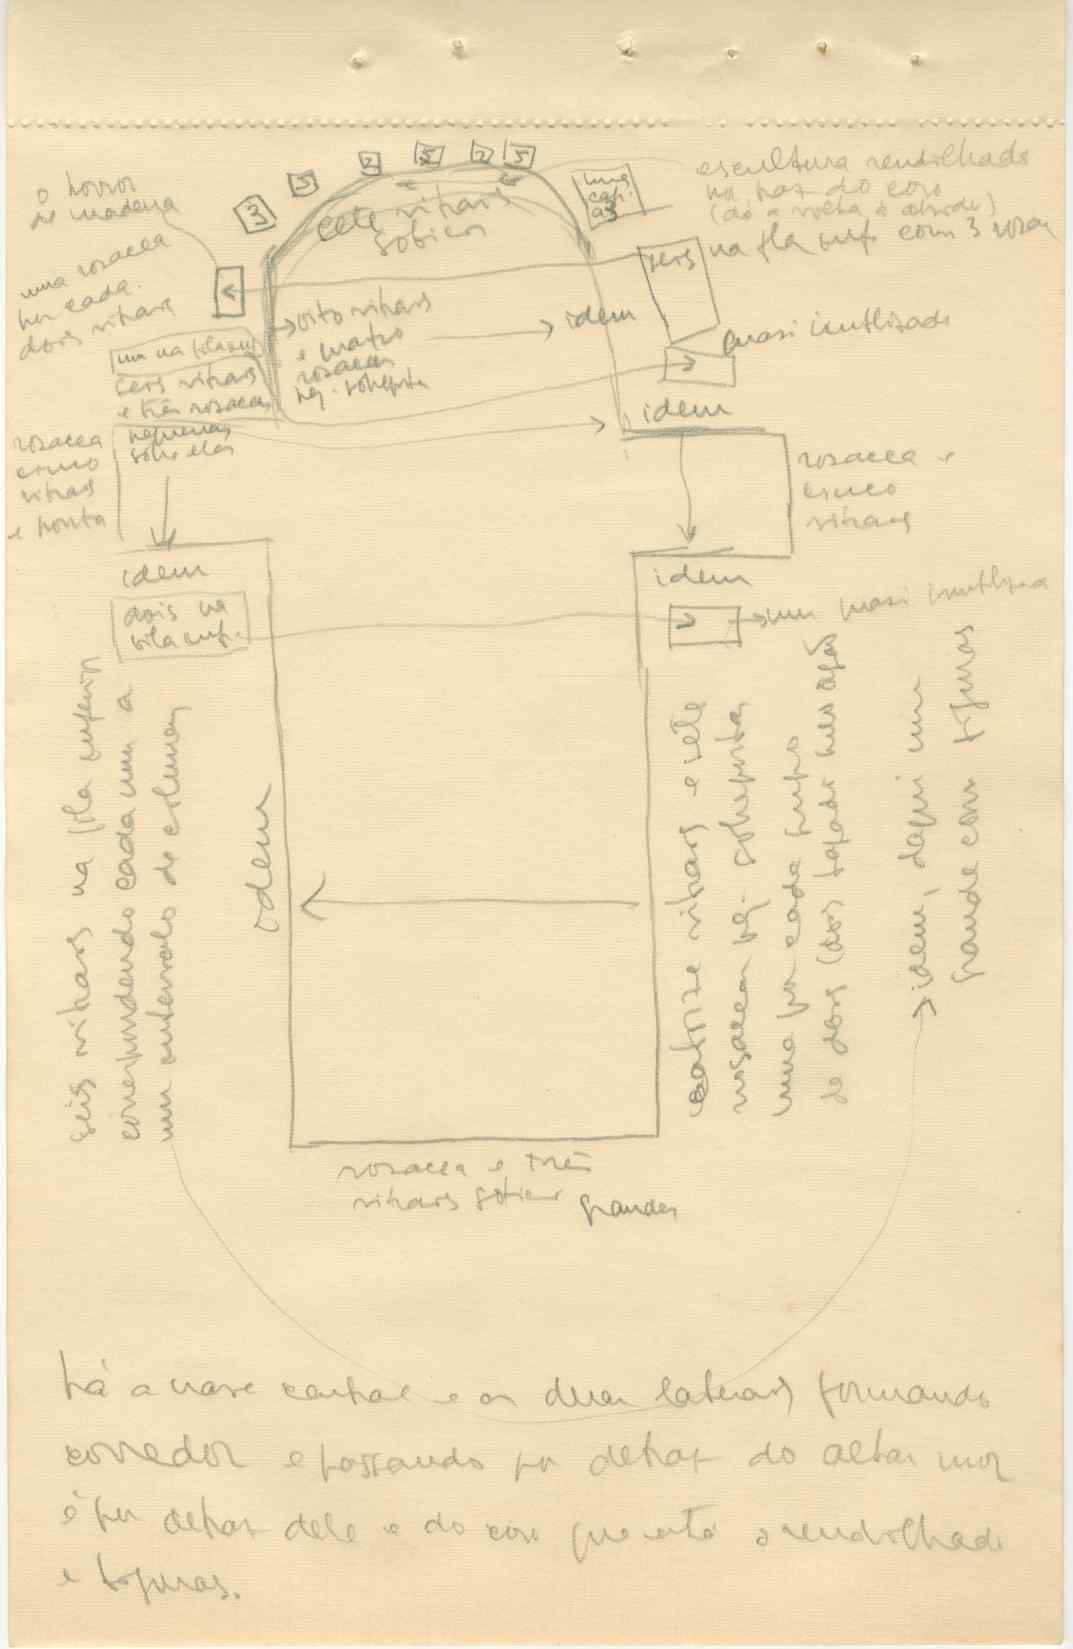 o horror
de madeira
3
5
2
5
2
5
sete vitrais
goticos
escultura rendilhada
na traz do coro
(dá a volta á abside)
seis na fila sup. com 3 rosac
uma rosacea
por cada
dois vitrais
um na fila sup
seis vitrais
e três rosaceas
pequenas
sobre elas
oito vitrais
e quatro
rosaceas
peq. sobrepostas
idem
quasi inutilizado
idem
rosacea
e cinco
vitrais
e porta
rosacea e
cinco
vitrais
idem
idem
dois na
fila sup.
um quasi inutilizado
seis vitrais na fila superior
correspondendo cada um a
um intervalo de colunas
idem
catorze vitrais e sete
rosaceas peq. sobrepostas
uma por cada grupo
de dois (dois tapados pelo orgão
idem, daqui um
grande com figuras
rosacea e três
vitrais goticos grandes
há a nave central e as duas laterais formando
corredor e passando por detraz do altar mor
é por detraz dele e do coro que está o rendilhado
e figuras.